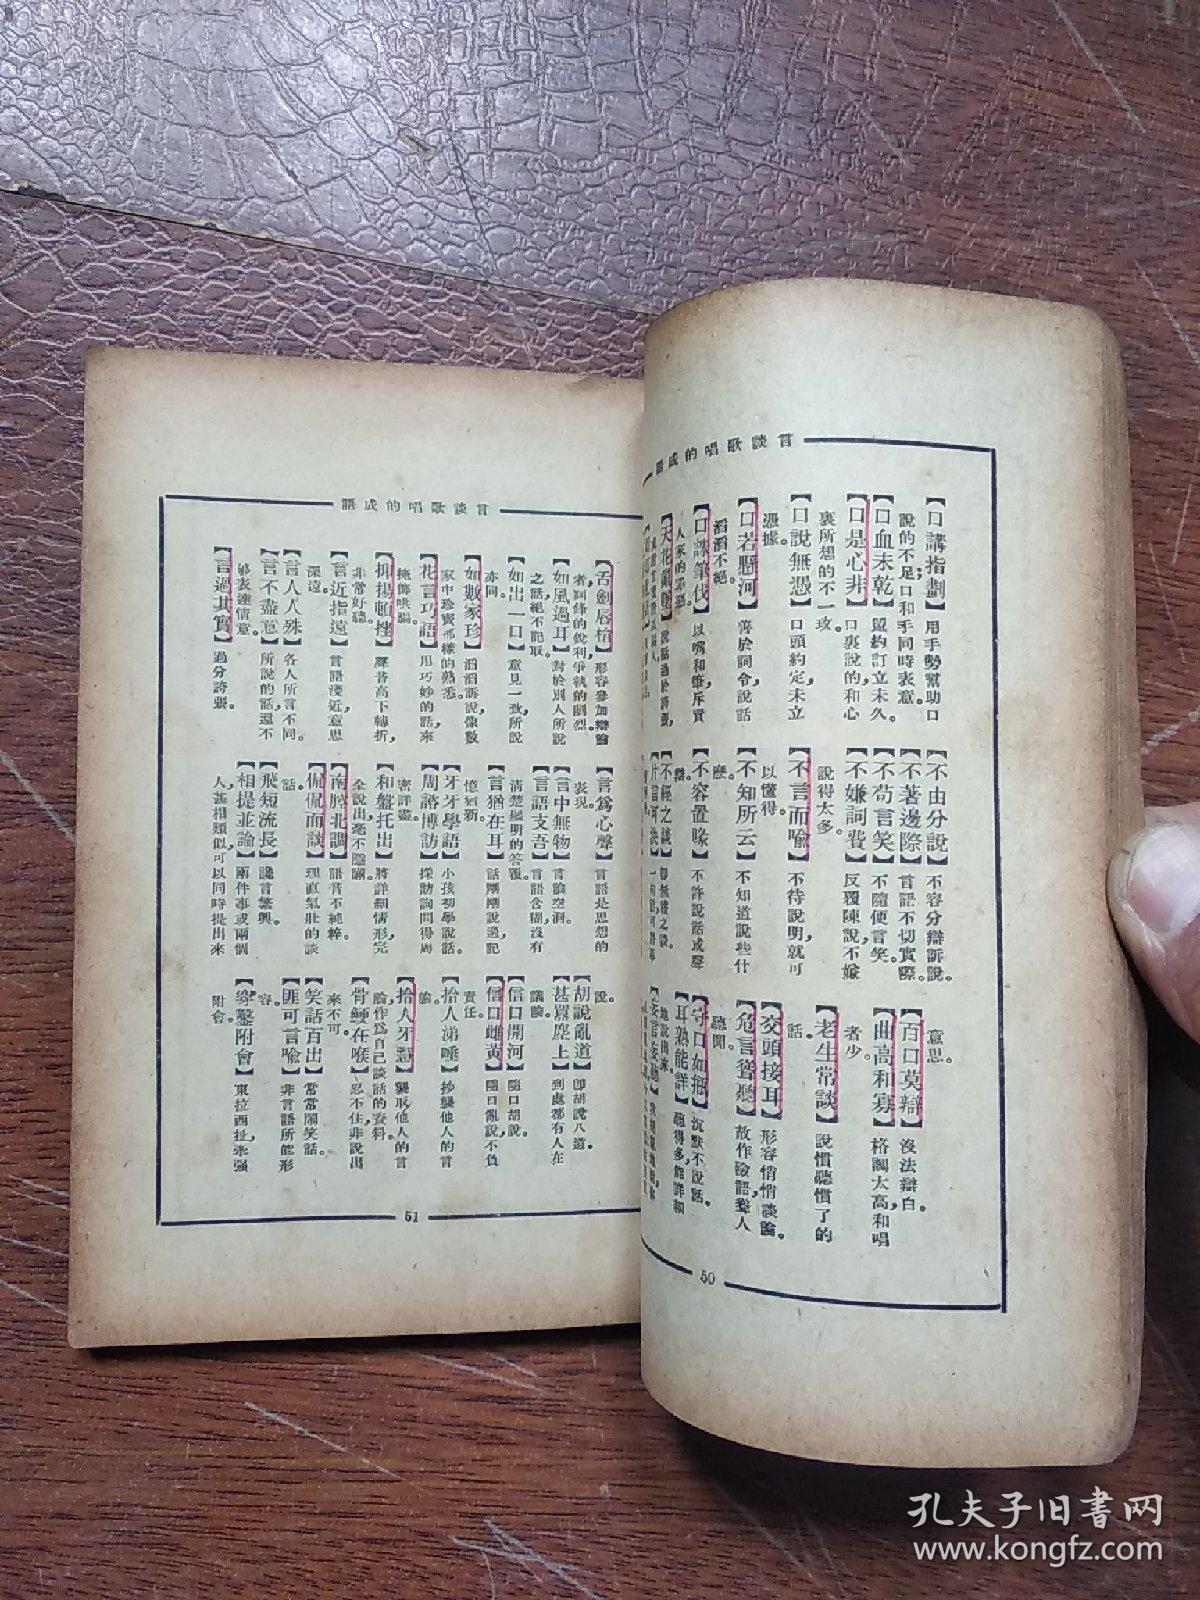 言談歌唱的成語
【口講指劃】用手勢幫助口
說的不足;口和手同時表意。
【口血未乾】盟約訂立未久。
【口是心非】口裏說的和心
裏所想的不一致。
【口說無憑】口頭約定未立
憑據。
【口若懸河】善於詞令說話
滔滔不絕。
【口誅筆伐】以嘴和筆斥責
人家的罪惡。
【不由分說】不容分辯訴說。
【不著邊際】言語不切實際。
【不苟言笑】不隨便言笑。
【不嫌詞費】反覆陳說不嫌
說得太多。
【不言而喻】不待說明就可
以懂得。
【不知所云】不知道說些什
麼。
【不容置喙】不許說話或聲
辯。
【不經之談】
意思。
【百口莫辯】沒法辯白。
【曲高和寡】格調太高,和唱
者少。
【老生常談】說慣聽慣了的
話。
【交頭接耳】形容悄悄談論。
【危言聳聽】故作險語聳人
聽聞。
【守口如瓶】沉默不說話。
【耳熟能詳】聽得多能詳細
地說出來。
50
言談歌唱的成語
【舌劍唇槍】形容參加辯論
者,詞鋒的銳利爭執的劇烈。
【如風過耳】對於別人所說
之話絕不記取。
【如出一口】意見一致所說
亦同。
【如數家珍】滔滔訴說像數
家中珍寶那樣的熟悉。
【花言巧語】用巧妙的話來
掩飾哄騙。
【抑揚頓挫】聲音高下轉折,
非常好聽。
【言近指遠】言語淺近意思
深遠。
【言人人殊】各人所言不同。
【言不盡意】所說的話,還不
够表達情意。
【言過其實】過分誇張。
【言爲心聲】言語是思想的
表現。
【言中無物】言論空洞。
【言語支吾】言語含糊,沒有
清楚與明的答覆。
【言猶在耳】話剛剛說過記
憶猶新。
【牙牙學語】小孩初學說話。
【周諮博訪】採訪詢問得周
密詳盡。
【和盤托出】將詳細情形完
全說出毫不隱瞞。
【南腔北調】語音不純粹。
【侃侃而談】理直氣壯的談
話。
【飛短流長】讒言繁興。
【相提並論】兩件事或兩個
人,這相類似可以同時提出來
說。
【胡說亂道】即胡說八道。
【甚囂塵上】到處都有人在
議論。
【信口開河】隨口胡說。
【信口雌黃】隨口亂說,不負
責任。
【拾人涕唾】抄襲他人的言
論。
【拾人牙慧】襲取他人的言
論,作爲自己談話的資料。
【骨鯁在喉】忍不住非說出
來不可。
【笑話百出】常常鬧笑話。
【匪可言喻】非言語所能形
容。
【穿鑿附會】東拉西扯,牽強
附會。
51
孔夫子旧書网
www.kongfz.com